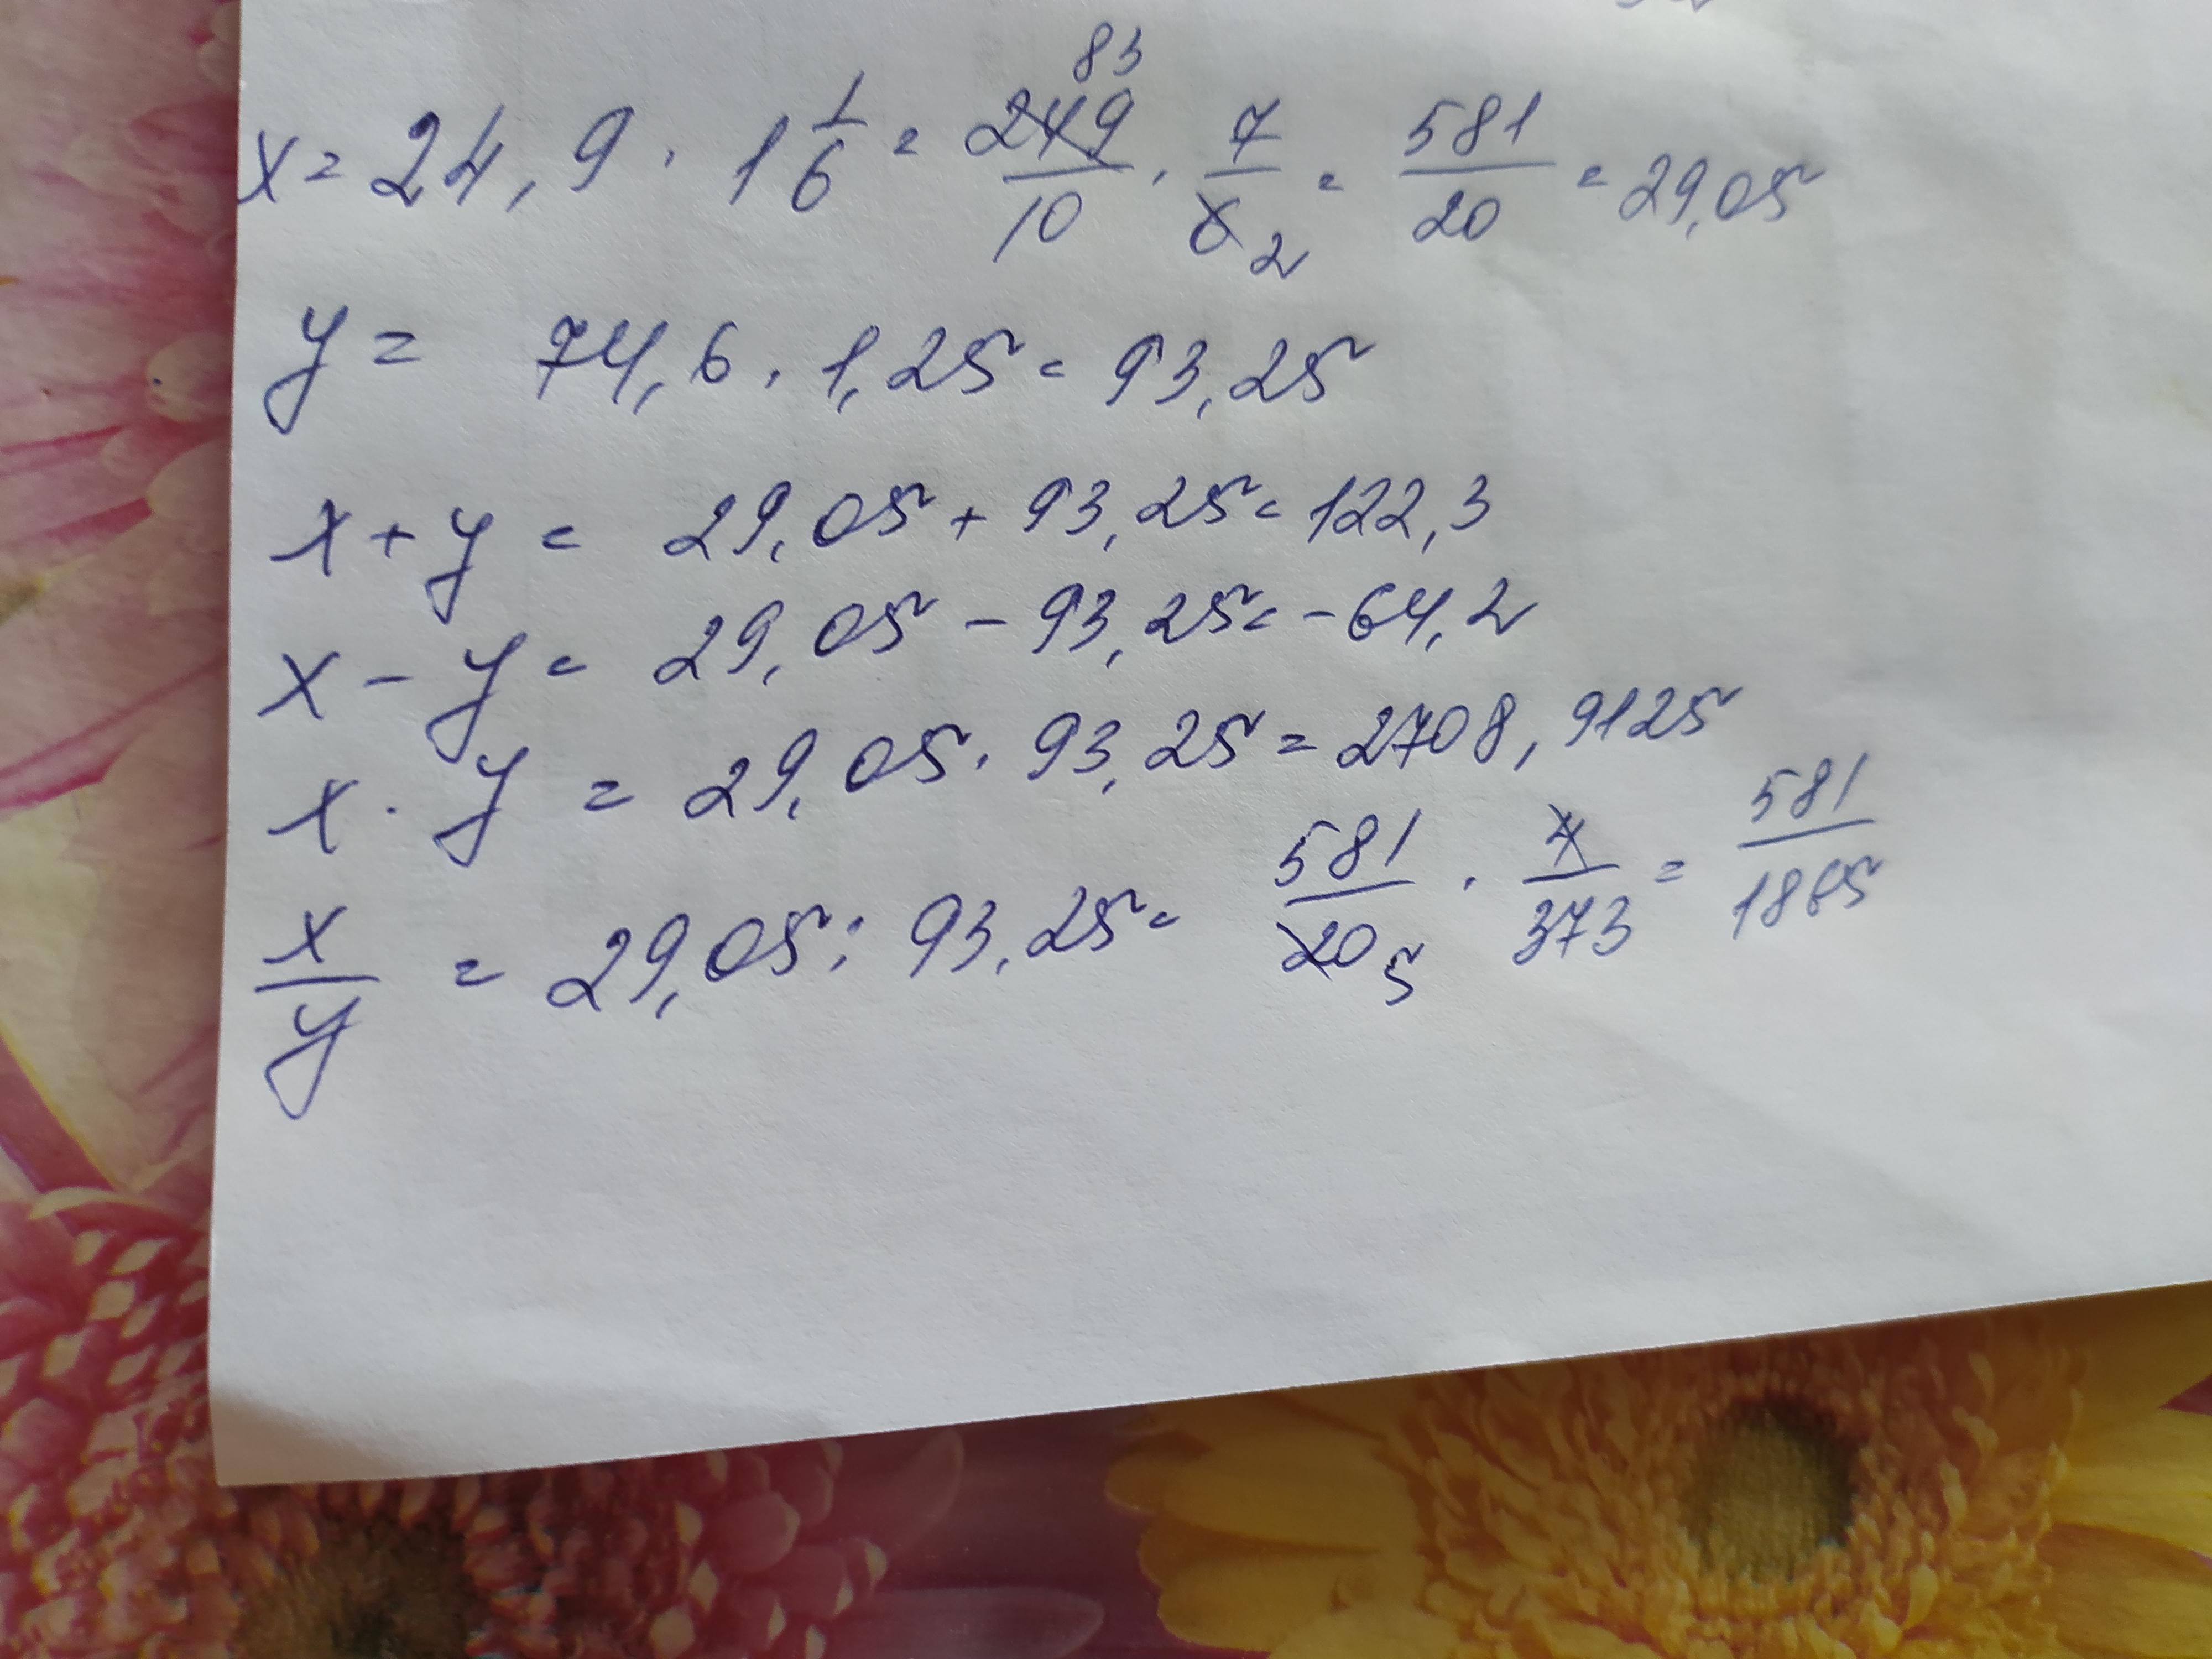 x = 24,9 · 1 1/6 = 249/10 83 · 7/6 2 = 581/20 = 29,05
y = 74,6 · 1,25 = 93,25
x + y = 29,05 + 93,25 = 122,3
x - y = 29,05 - 93,25 = -64,2
x · y = 29,05 · 93,25 = 2708,9125
x/y = 29,05 : 93,25 = 581/20 5 · 4/373 = 581/1865